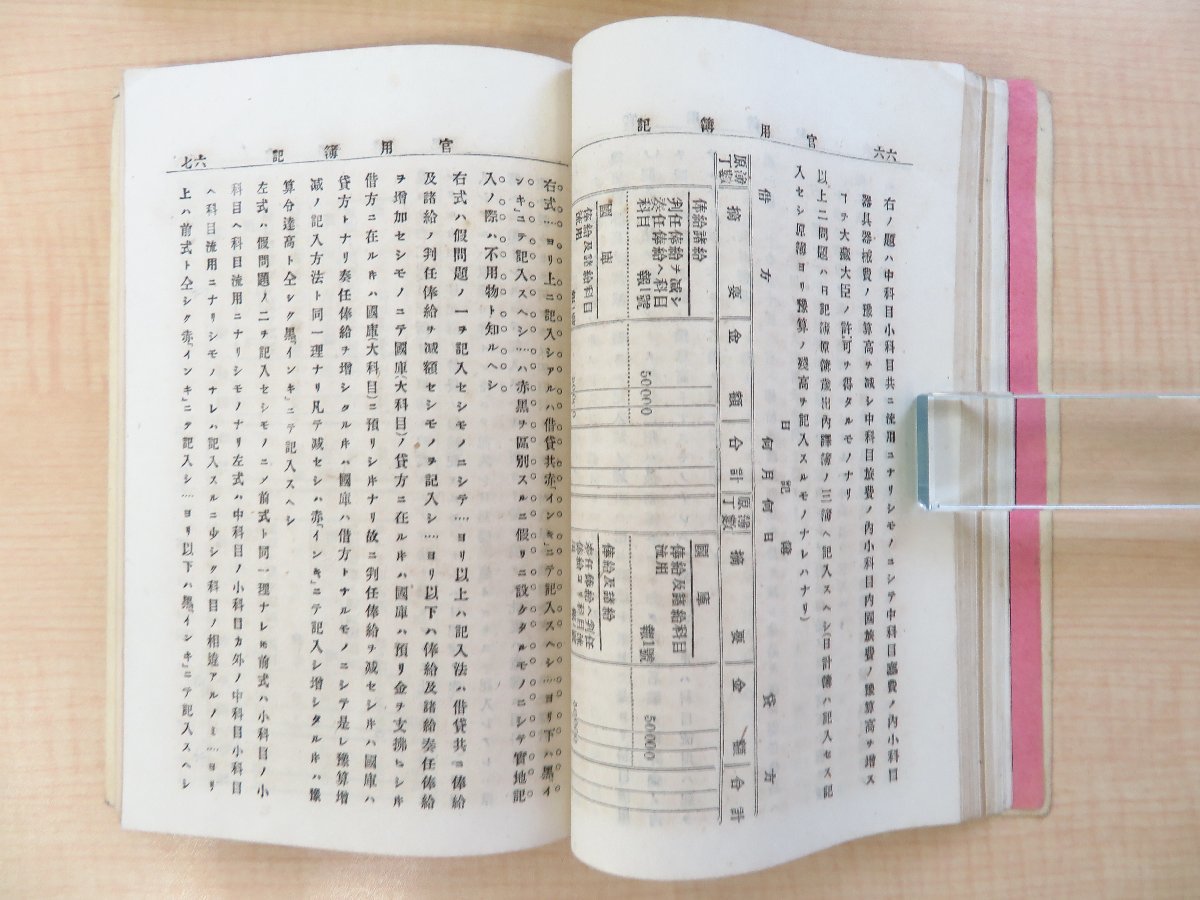 官用簿記
六六
右ノ題ハ中科目小科目共ニ流用ニナリシモノニシテ中科目廳費ノ內小科目
器具器械費ノ豫算高ヲ減シ中科目旅費ノ內小科目內國旅費ノ豫算高ヲ增ス
ヿヲ大藏大臣ノ許可ヲ得タルモノナリ
以上二問題ハ日記簿原簿歲出內譯簿ノ三簿ヘ記入スヘシ(日計簿ハ記入セス記
入セシ原簿ヨリ豫算ノ殘高ヲ記入スルモノナレハナリ)
日記簿
何月何日
借方
貸方
原簿丁數
摘要
金額
合計
原簿丁數
摘要
金額
合計
俸給諸給
判任俸給ヲ減シ
奏任俸給ヘ科目
科目 報1號
50000
國庫
俸給及諸給科目
國庫
俸給及諸給科目
流用 報1號
50000
俸給及諸給
官用簿記
六七
右式……ヨリ上ニ記入シアルハ借貸共赤「インキ」ニテ記入スヘシ……ヨリ下ハ黑イ
ンキ」ニテ記入スヘシ……ハ赤黑ヲ區別スルニ假リニ設タルモノニシテ實地記
入ノ際ハ不用物ト知ルヘシ
右式ハ假問題ノ一ヲ記入セシモノニシテ……ヨリ以上ハ記入法ハ借貸共ニ俸給
及諸給ノ判任俸給ヲ減額セシモノヲ記入シ……ヨリ以下ハ俸給及諸給奏任俸給
ヲ增加セシモノニテ國庫(大科目)ノ貸方ニ在ルキハ國庫ハ預リ金ヲ支拂ヒシキ
借方ニ在ルキハ國庫(大科目)ニ預リシキナリ故ニ判任俸給ヲ減セシキハ國庫ハ
貸方トナリ奏任俸給ヲ增シタルキハ國庫ハ借方トナルモノニシテ是レ豫算增
減ノ記入方法ト同一理ナリ凡テ減セシハ赤「インキ」ニテ記入シ增シタルキハ豫
算分達高ト仝シク黑「インキ」ニテ記入スヘシ
左式ハ假問題ノ二ヲ記入セシモノニメ前式ト同一理ナレ𪜈前式ハ小科目ノ小
科目ヘ科目流用ニナリシモノナリ左式ハ中科目ノ小科目カ外ノ中科目小科目
ヘ科目流用ニナリシモノナレハ記入スルニ少シク科目ノ相違アルノミ……ヨリ
上ハ前式ト仝シク赤「インキ」ニテ記入シ……ヨリ以下ハ黑「インキ」ニテ記入スヘシ